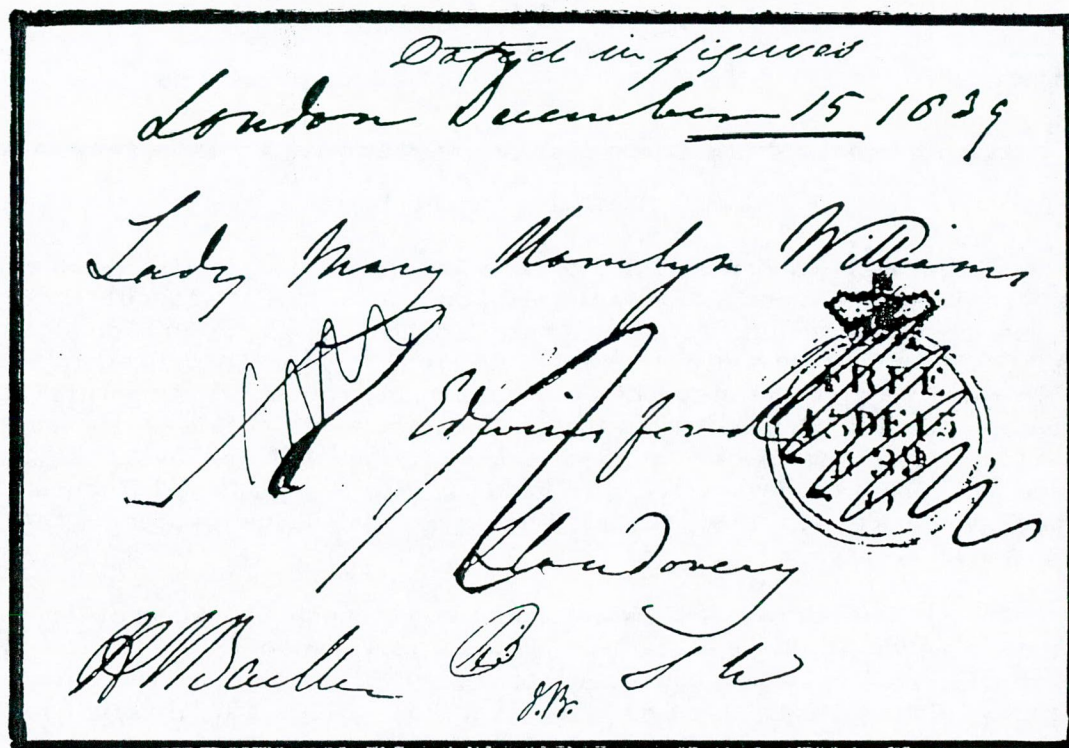 Dated in figures
London December 15 1839
Lady Mary Hamlyn Williams
Edwinsford
Llandovery
FREE
1839
S W
J.W.